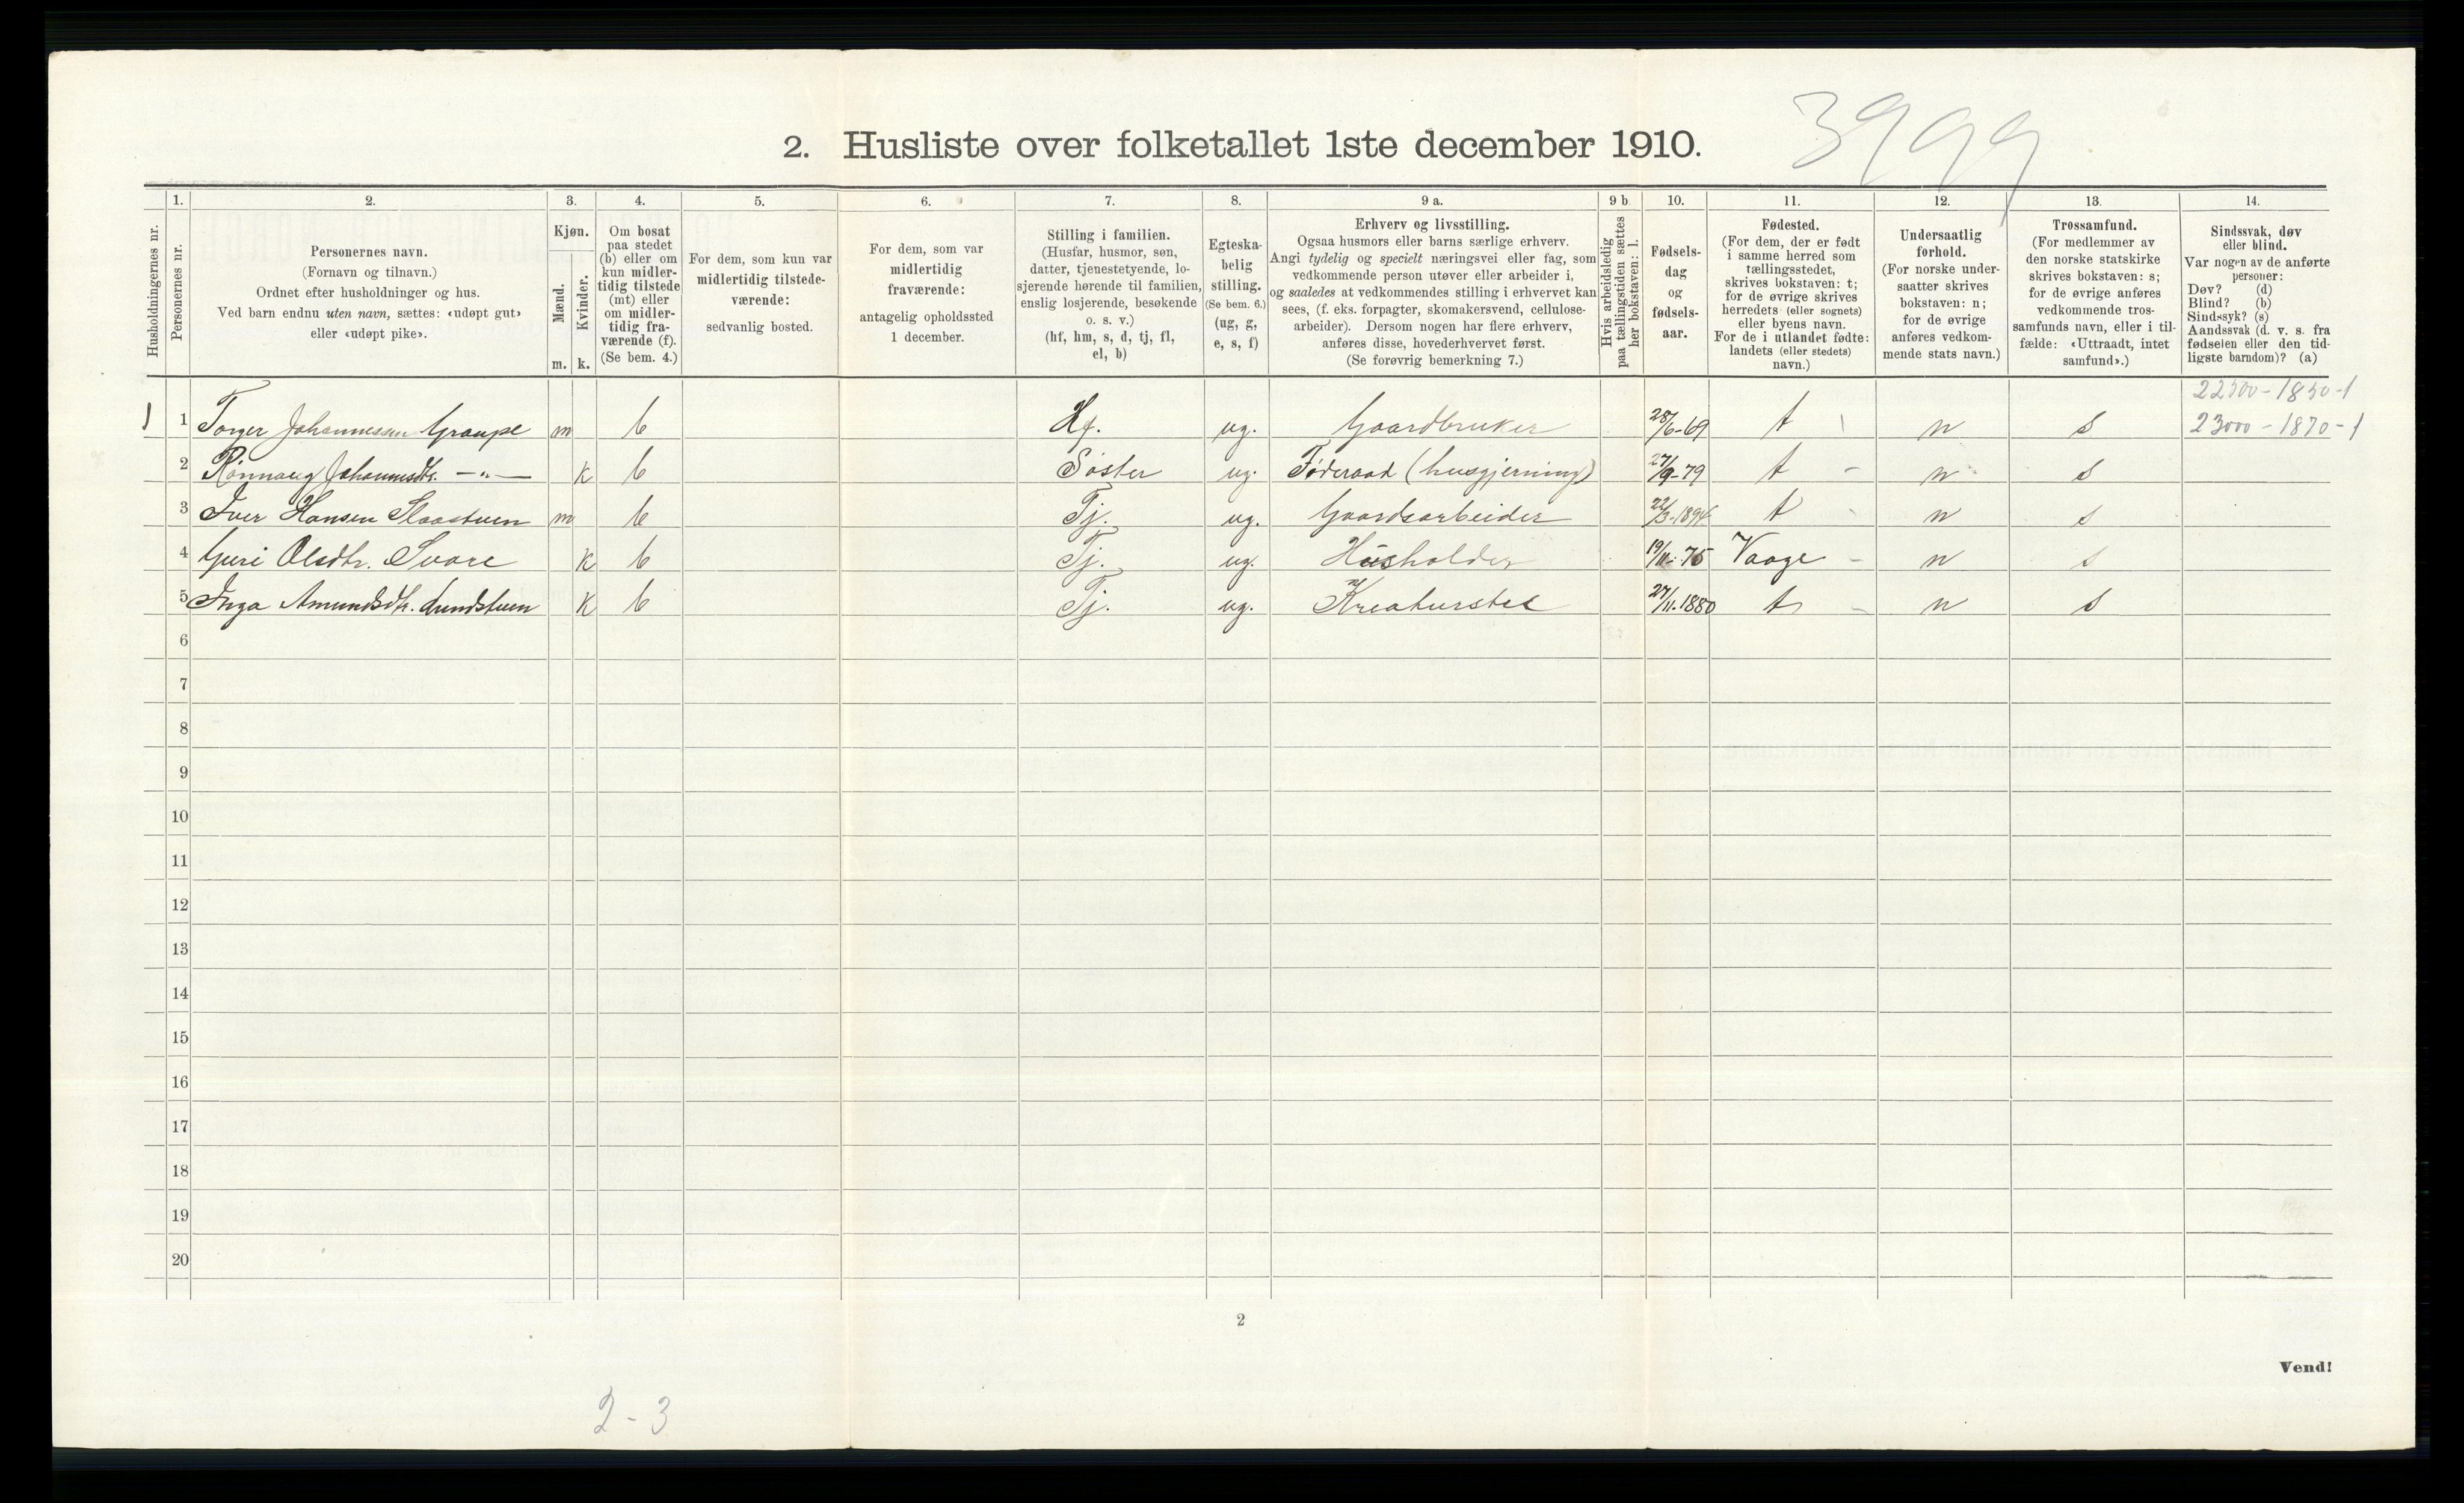 3999
2. Husliste over folketallet 1ste december 1910.
Husholdningernes nr.
1.
Personernes nr.
2.
Personernes navn.
(Fornavn og tilnavn.)
Ordnet efter husholdninger og hus.
Ved barn endnu uten navn, sættes: «udøpt gut»
eller «udøpt pike».
3.
Kjøn.
Mænd.
Kvinder.
m. k.
4.
Om bosat
paa stedet
(b) eller om
kun midler-
tidig tilstede
(mt) eller
om midler-
tidig fra-
værende (f).
(Se bem. 4.)
5.
For dem, som kun var
midlertidig tilstede-
værende:
sedvanlig bosted.
6.
For dem, som var
midlertidig
fraværende:
antagelig opholdssted
1 december.
7.
Stilling i familien.
(Husfar, husmor, søn,
datter, tjenestetyende, lo-
sjerende hørende til familien,
enslig losjerende, besøkende
o. s. v.)
(hf, hm, s, d, tj, fl,
el, b)
8.
Egteska-
belig
stilling.
(Se bem. 6.)
(ug, g,
e, s, f)
9 a.
Erhverv og livsstilling.
Ogsaa husmors eller barns særlige erhverv.
Angi tydelig og specielt næringsvei eller fag, som
vedkommende person utøver eller arbeider i,
og saaledes at vedkommendes stilling i erhvervet kan
sees, (f. eks. forpagter, skomakersvend, cellulose-
arbeider). Dersom nogen har flere erhverv,
anføres disse, hovederhvervet først.
(Se forøvrig bemerkning 7.)
9 b
Hvis arbeidsledig
paa tællingstiden sættes
her bokstaven: l.
10.
Fødsels-
dag
og
fødsels-
aar.
11.
Fødested.
(For dem, der er født
i samme herred som
tællingsstedet,
skrives bokstaven: t;
for de øvrige skrives
herredets (eller sognets)
eller byens navn.
For de i utlandet fødte:
landets (eller stedets)
navn.)
12.
Undersaatlig
forhold.
(For norske under-
saatter skrives
bokstaven: n;
for de øvrige
anføres vedkom-
mende stats navn.)
13.
Trossamfund.
(For medlemmer av
den norske statskirke
skrives bokstaven: s;
for de øvrige anføres
vedkommende tros-
samfunds navn, eller i til-
fælde: «Uttraadt, intet
samfund».)
14.
Sindssvak, døv
eller blind.
Var nogen av de anførte
personer:
Døv? (d)
Blind? (b)
Sindssyk? (s)
Aandssvak (d. v. s. fra
fødselen eller den tid-
ligste barndom)? (a)
22500-1850-1
1 1 Torger Johannessen Graupe m b Hf. ug. Gaardbruker 28/6-69 t n s 23000-1870-1
2 Rönnaug Johannesdtr. -"- k b Søster ug. Føderaad (husgjerning) 27/9-79 t - n s
3 Iver Hansen Slaastuen m b Tj. ug. Gaardsarbeider 22/3-1894 t - n s
4 Guri Olsdtr. Svare k b Tj. ug. Husholder 19/11-75 Vaage - n s
5 Inga Amundsdtr. Lundstuen k b Tj. ug. Kreaturstel 27/11.1880 t - n s
6
7
8
9
10
11
12
13
14
15
16
17
18
19
20
2
Vend!
2-3